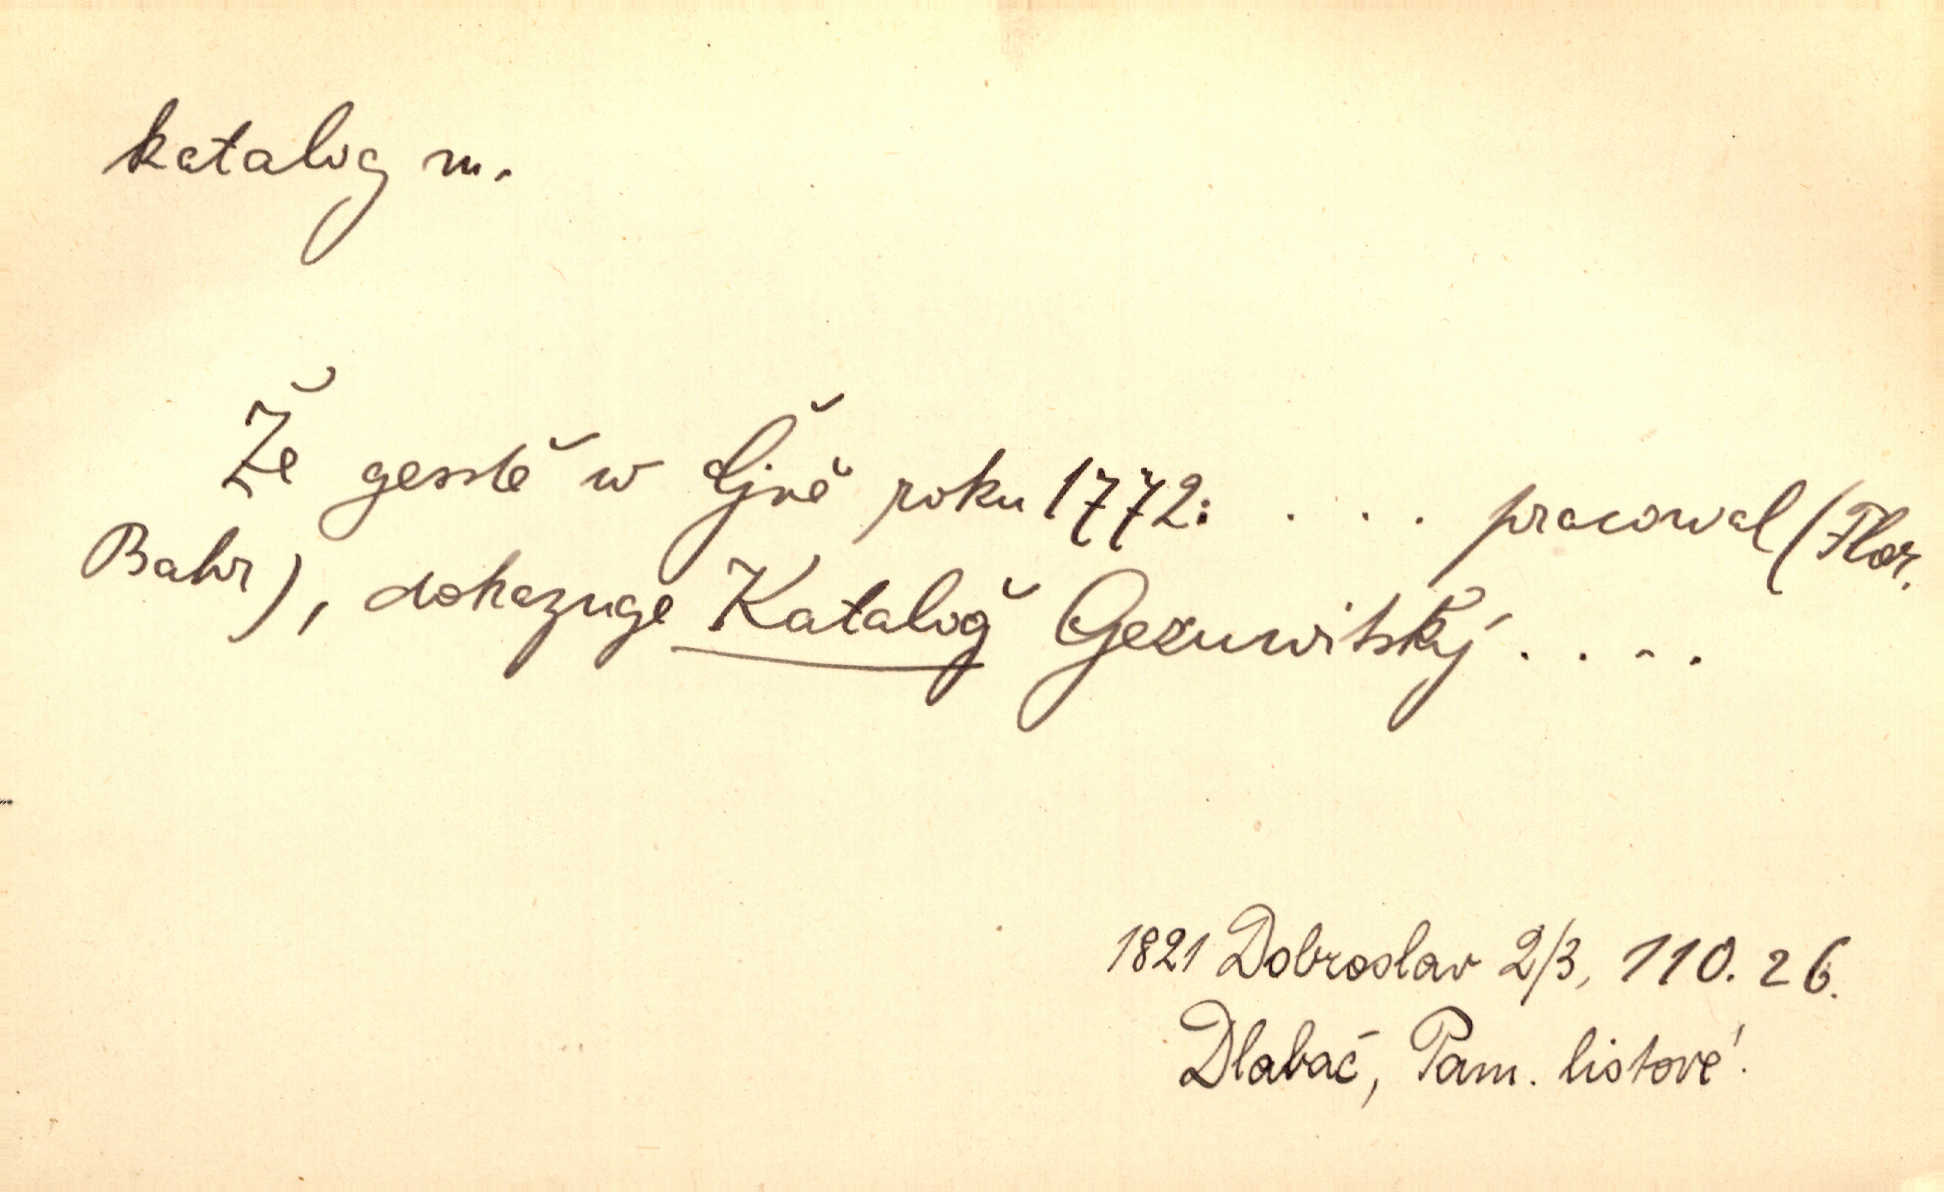 katalog m.
Že gesstě w Čjně roku 1772: . . . pracowal (Flor.
Bahr), dokazuge Kataloǧ Gezuwitský . . . .
1821 Dobroslav 2/3, 110. 26.
Dlabač, Pam. listové.